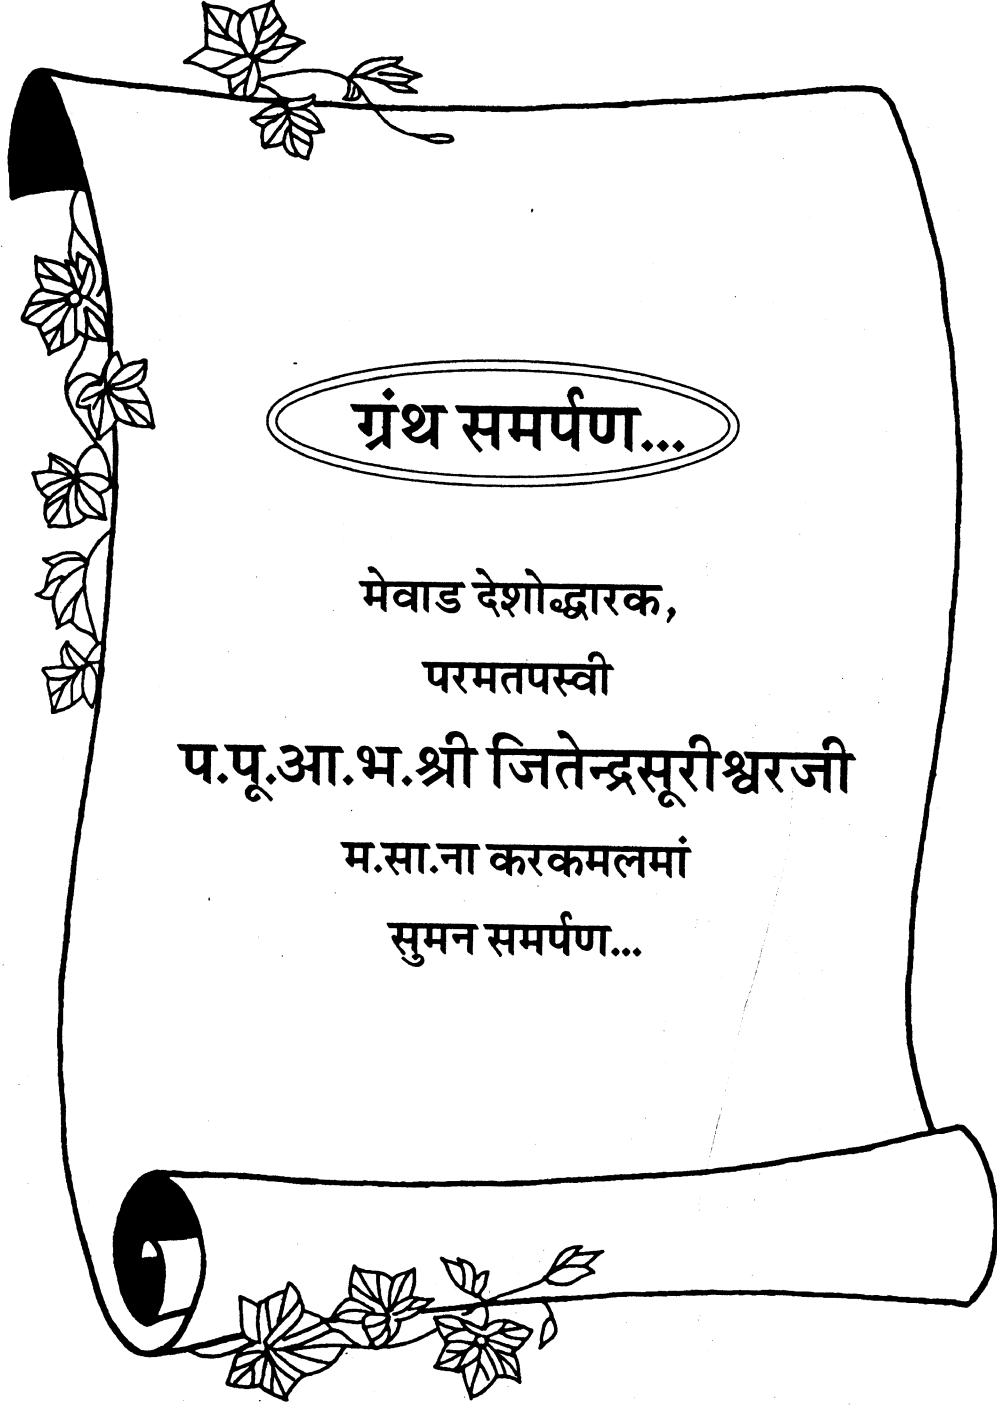 ग्रंथ समर्पण...
मेवाड देशोद्धारक,
परमतपस्वी
प.पू.आ.भ.श्री जितेन्द्रसूरीश्वरजी
म.सा.ना करकमलमां
सुमन समर्पण...